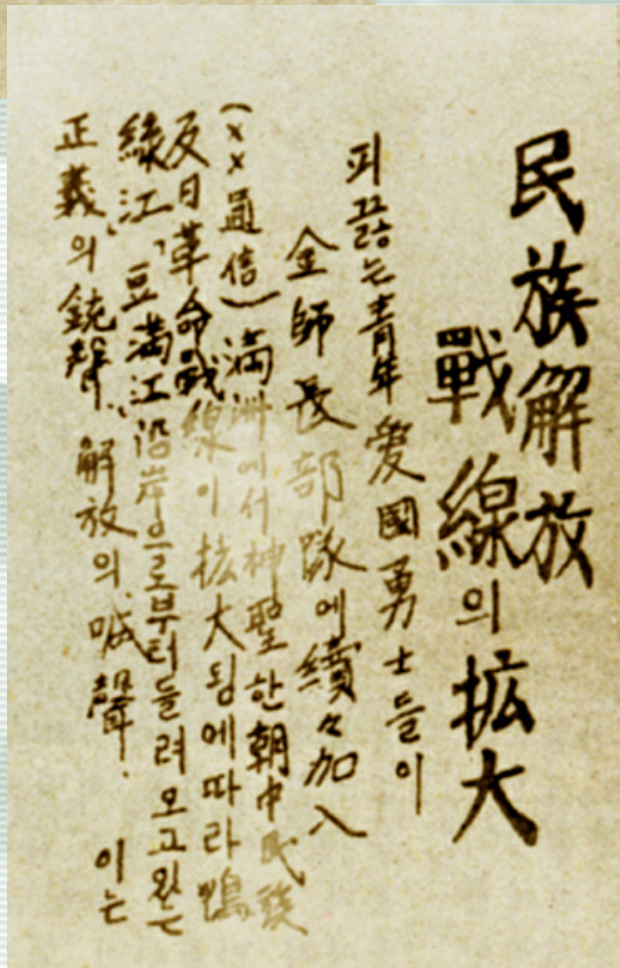 民族解放
戰線의拡大
피끓는青年愛國勇士들이
金師長部隊에續々加入
(××通信)満洲에서神聖한朝中民族
反日革命戰線이拡大됨에따라鴨
緑江、豆満江沿岸으로부터들려오고있는
正義의銃聲、解放의喊聲. 이는